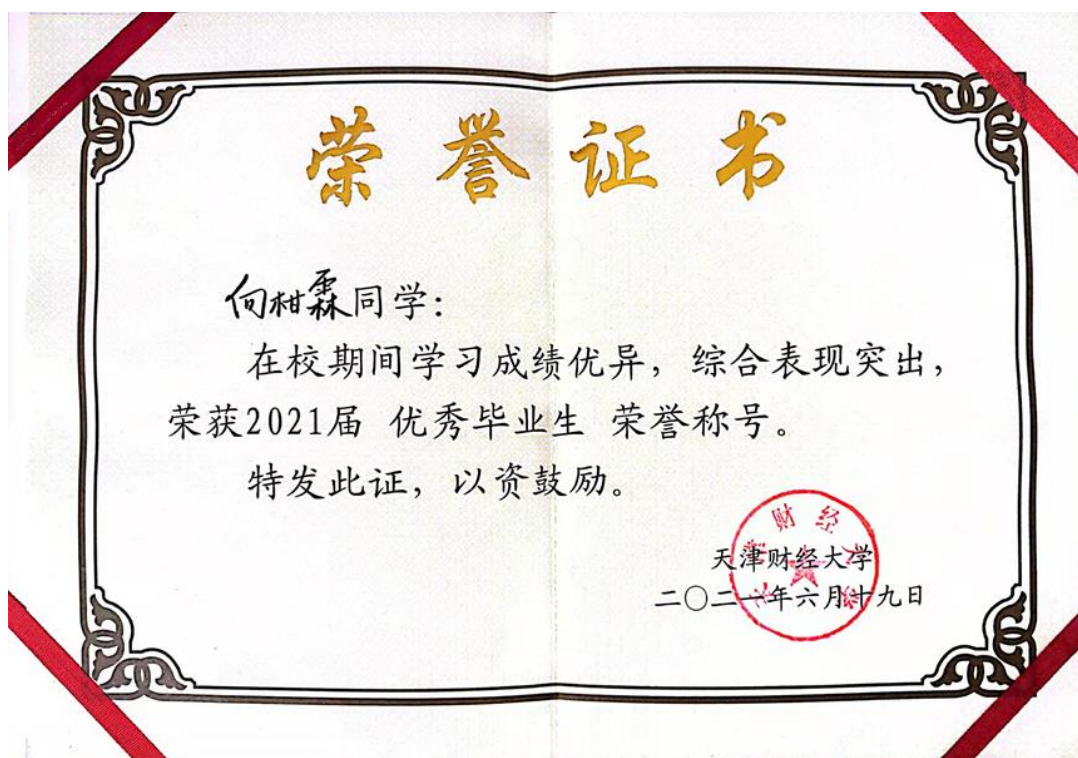 荣誉证书
向柑霖同学：
在校期间学习成绩优异，综合表现突出，
荣获2021届 优秀毕业生 荣誉称号。
特发此证，以资鼓励。
天津财经大学
二〇二一年六月十九日
天津财经大学